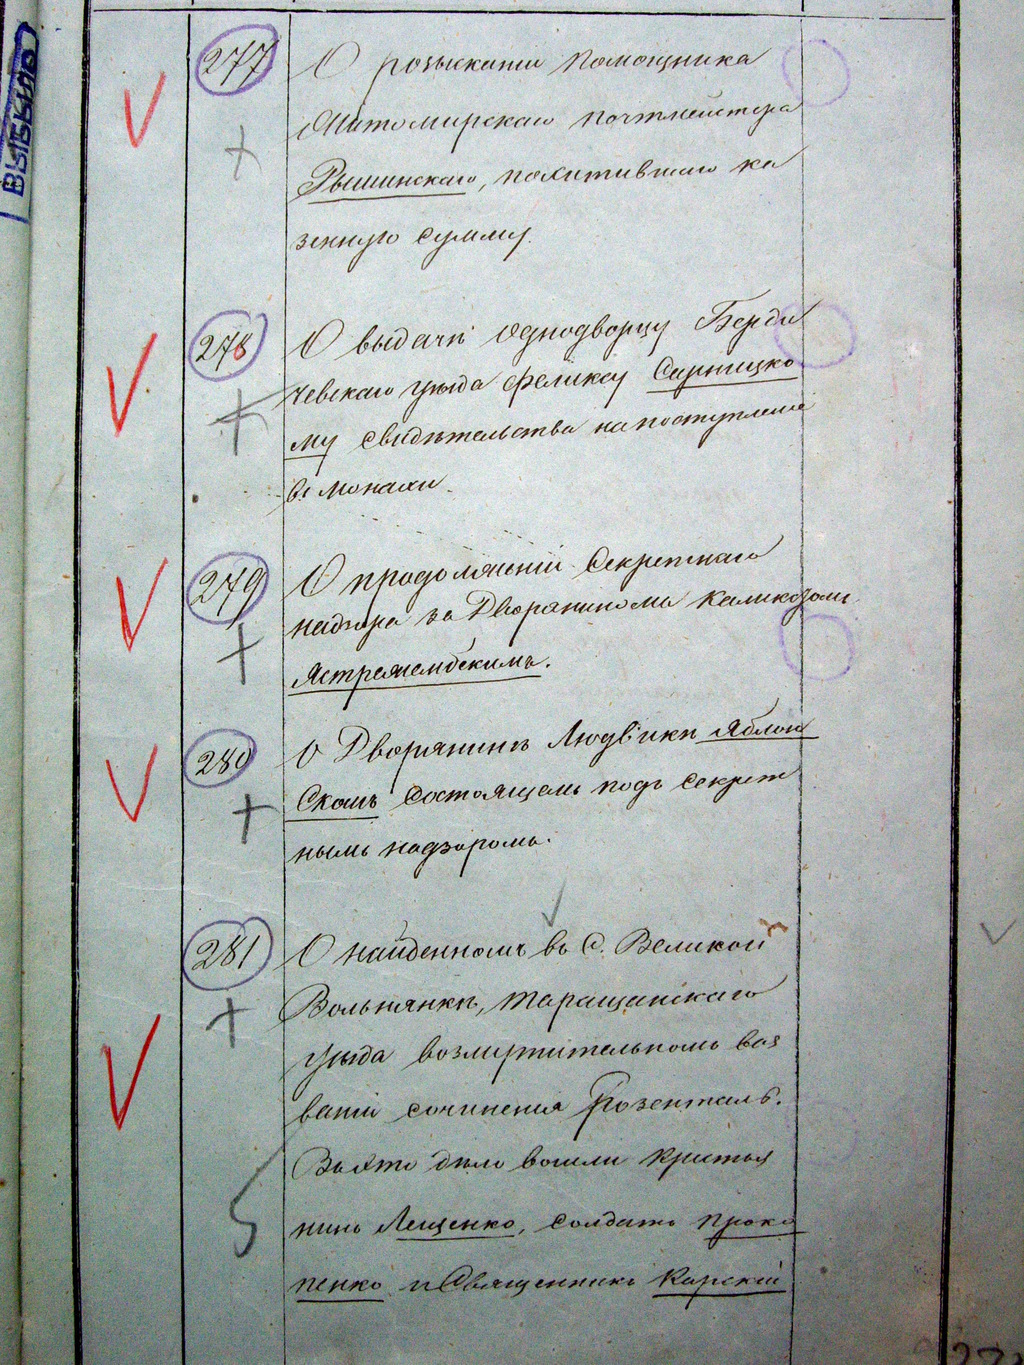 ВЫБЫЛО
277
О розысканіи помощника
Житомирскаго почтмейстера
Рышинскаго, похитившаго ка
зенную сумму.
278
О выдачѣ однодворцу Берди
чевскаго уѣзда Феликсу Сарницко
му свидѣтельства на поступленіе
въ монахи.
279
О продолженіи секретнаго
надзора за Дворяниномъ
Ястржембскимъ.
280
О Дворянинѣ Людвикѣ Яблон
скомъ состоящемъ подъ секрет
нымъ надзоромъ.
281
О найденномъ въ с. Великой
Вольнянкѣ, Таращанскаго
уѣзда возмутительномъ воз
ваніи сочиненія Розенталь.
Въ это дѣло вошли крестья
нинъ Лещенко, солдатъ Проко
пенко и Священникъ Карскій